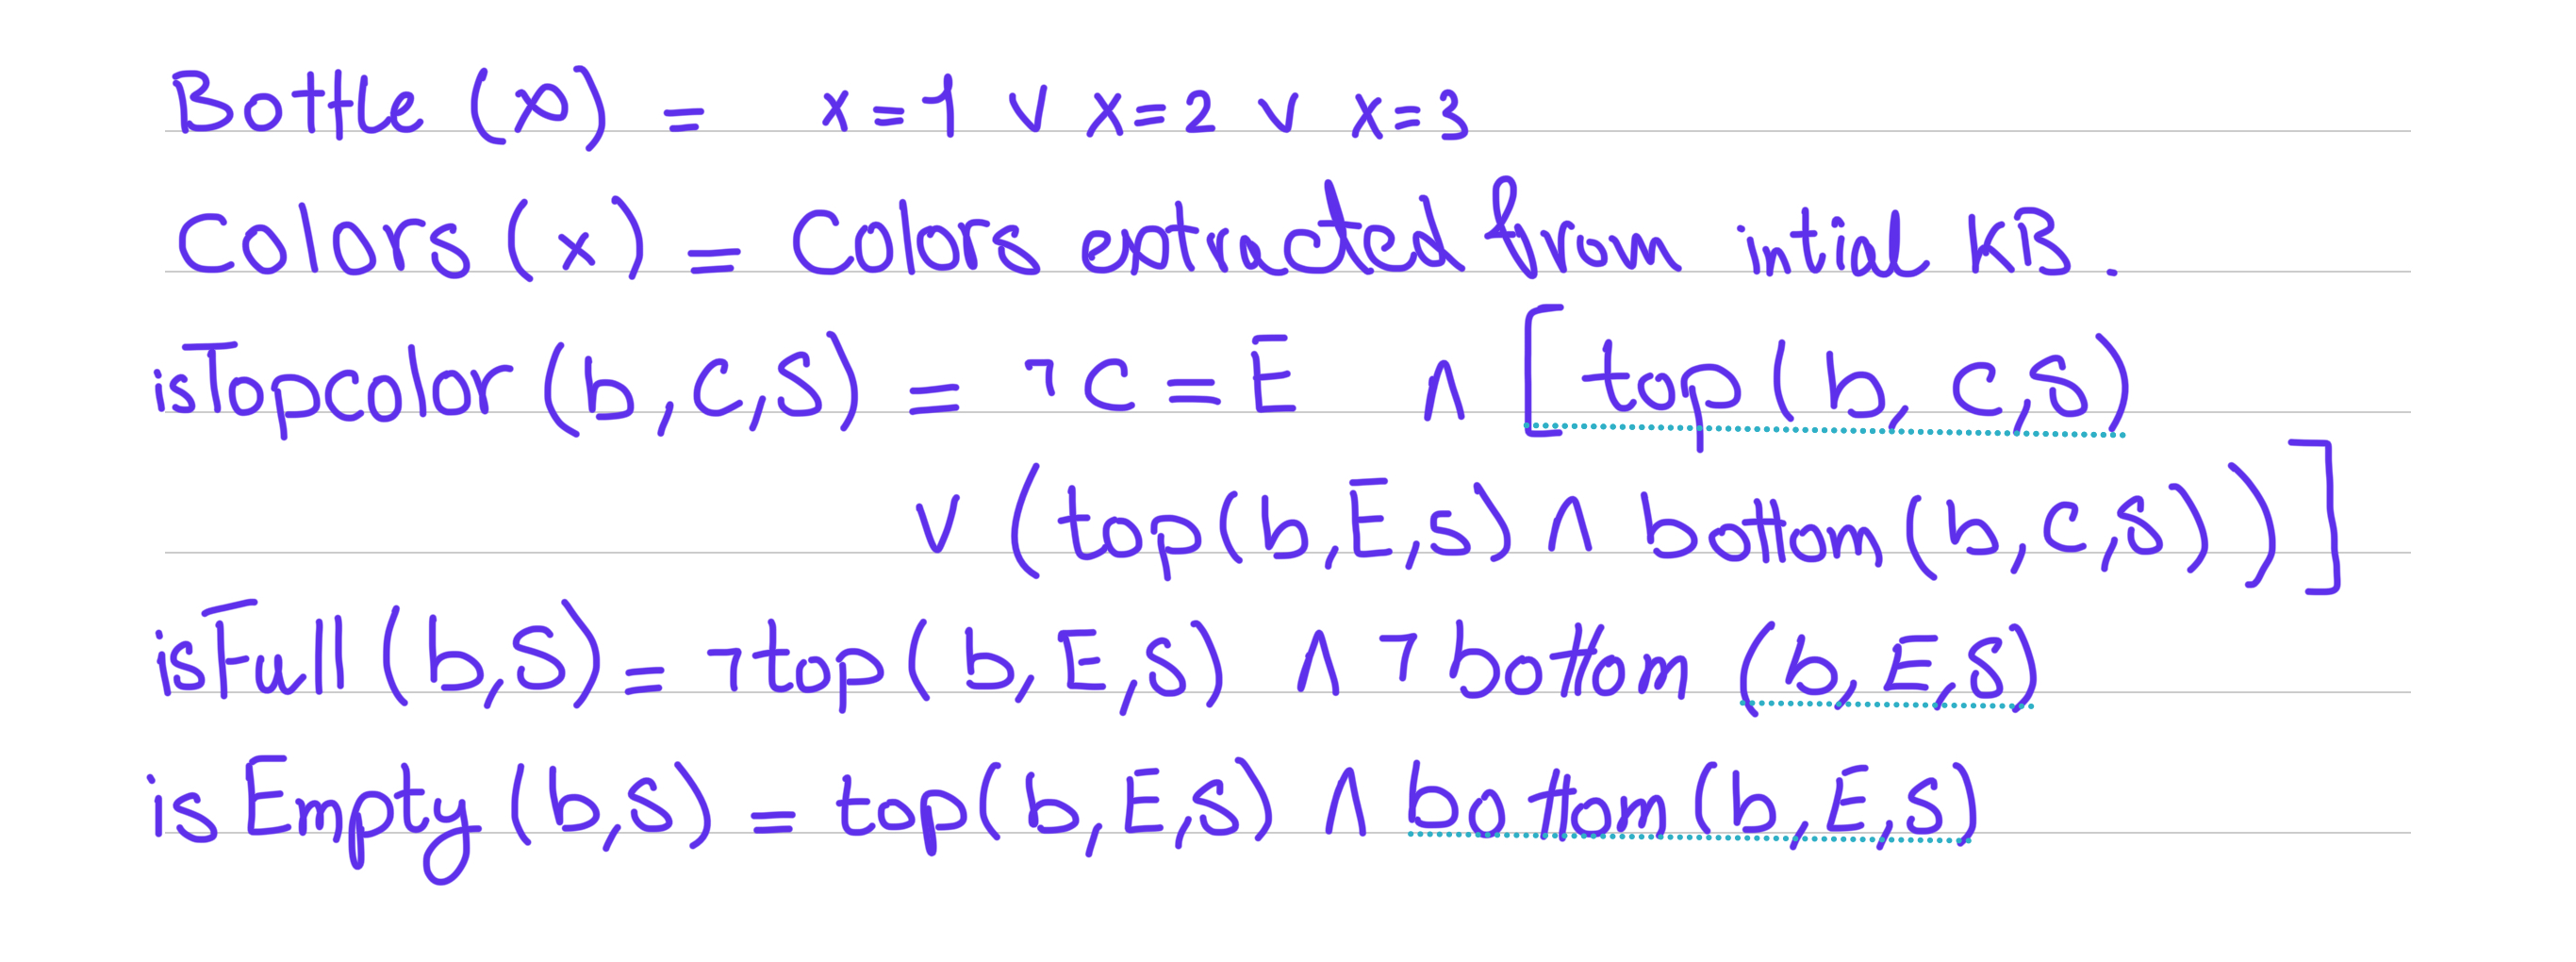 Bottle (x) = x=1 ∨ x=2 ∨ x=3
Colors (x) = Colors extracted from intial KB.
isTopcolor(b,c,s) = ¬C = E ∧ [top(b,c,s)
∨ (top(b,E,s) ∧ bottom(b,c,s))]
isFull(b,s) = ¬top(b,E,s) ∧ ¬bottom (b,E,s)
isEmpty(b,s) = top(b,E,s) ∧ bottom(b,E,s)